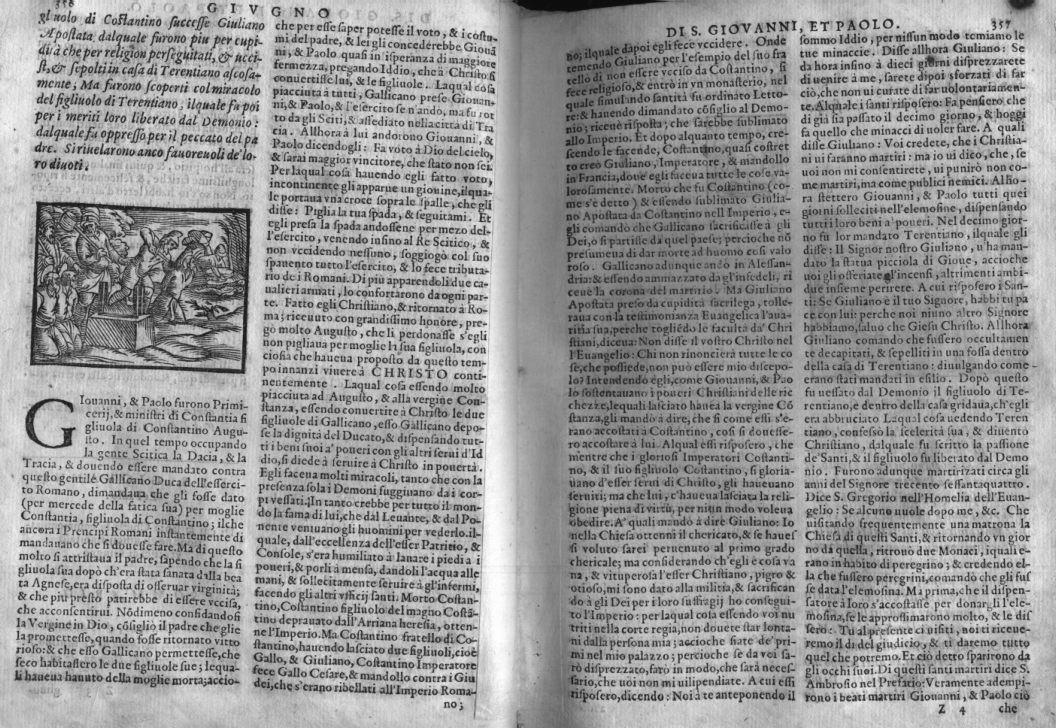 356
GIVGNO
gliuolo di Costantino successe Giuliano
Apostata, dalquale furono piu per cupi-
dità che per religion perseguitati, & ucci-
si, & sepolti in casa di Terentiano ascosa-
mente; Ma furono scoperti col miracolo
del figliuolo di Terentiano; ilquale fu poi
per i meriti loro liberato dal Demonio:
dalquale fu oppresso per il peccato del pa
dre. Si riuelarono anco fauoreuoli de'lo-
ro diuoti.
GIouanni, & Paolo furono Primi-
cerij, & ministri di Constantia fi
gliuola di Constantino Augu-
sto. In quel tempo occupando
la gente Scitica la Dacia, & la
Tracia, & douendo essere mandato contra
questo gentile Gallicano Duca dell'esserci-
to Romano, dimandaua che gli fosse dato
(per mercede della fatica sua) per moglie
Constantia, figliuola di Constantino; ilche
ancora i Prencipi Romani instantemente di
mandauano che si douesse fare. Ma di questo
molto si attristaua il padre, sapendo che la fi
gliuola sua dopò ch'era stata sanata dalla bea
ta Agnese, era disposta di osseruar virginità;
& che piu presto patirebbe di essere vccisa,
che acconsentirui. Nōdimeno confidandosi
la Vergine in Dio, cōsigliò il padre che glie
la promettesse, quando fosse ritornato vitto
rioso: & che esso Gallicano permettesse, che
seco habitassero le due figliuole sue; lequa-
li haueua hauuto della moglie morta; accio-
che per esse saper potesse il voto, & i costu-
mi del padre, & lei gli concederebbe Giouā
ni, & Paolo quasi in isperanza di maggiore
fermezza, pregando Iddio, che à Christo si
conuertisse lui, & le figliuole. Laqual cosa
piacciuta à tutti, Gallicano prese Giouan-
ni, & Paolo, & l'esercito n'andò, ma fu rot
to da gli Sciti, & assediato nella città di Tra
cia. Allhora à lui andorono Giouanni, &
Paolo dicendogli: Fa voto à Dio del cielo,
& sarai maggior vincitore, che stato non sei.
Perlaqual cosa hauendo egli fatto voto,
incontinente gli apparue un giouine, ilqua-
le portaua vna croce sopra le spalle, che gli
disse: Piglia la tua spada, & seguitami. Et
egli presa la spada andossene per mezo del-
l'esercito, venendo insino al Re Scitico, &
non vccidendo nessuno, soggiogò col suo
spauento tutto l'esercito, & lo fece tributa-
rio de i Romani. Di piu apparendoli due ca-
ualieri armati, lo confortarono da ogni par-
te. Fatto egli Christiano, & ritornato à Ro-
ma; riceuuto con grandissimo honore, pre-
gò molto Augusto, che li perdonasse s'egli
non pigliaua per moglie la sua figliuola, con
ciosia che haueua proposto da questo tem-
po innanzi viuere à CHRISTO conti-
nentemente. Laqual cosa essendo molto
piacciuta ad Augusto, & alla vergine Con-
stanza, essendo conuertire à Christo le due
figliuole di Gallicano, esso Gallicano depo-
se la dignità del Ducato, & dispensando tut-
ti i beni suoi a' poueri con gli altri serui d'Id
dio, si diede à seruire à Christo in pouertà.
Egli facena molti miracoli, tanto che con la
presenza sola i Demoni fuggiuano da i cor-
pi vessati. In tanto crebbe per tutto il mon-
do la fama di lui, che dal Leuante, & dal Po-
nente veniuano gli huomini per vederlo. il-
quale, dall'eccellenza dell'esser Patritio, &
Console, s'era humiliato à lauare i piedi a i
poueri, & porli à mensa, dandoli l'acqua alle
mani, & sollecitamente seruire à gl'infermi,
facendo gli altri vfficij santi. Morto Costan-
tino, Costantino figliuolo del magno Costā-
tino deprauato dall'Arriana heresia, otten-
ne l'Imperio. Ma Costantino fratello di Co-
stantino, hauendo lasciato due figliuoli, cioè
Gallo, & Giuliano, Costantino Imperatore
fece Gallo Cesare, & mandollo contra i Giu
dei, che s'erano ribellati all'Imperio Roma-
no;
DI S. GIOVANNI, ET PAOLO.
357
no; ilquale dapoi egli fece vccidere. Onde
temendo Giuliano per l'esempio del suo fra
tello di non essere vcciso da Costantino, si
fece religioso, & entrò in vn monasterio, nel
quale simulando santità fu ordinato Letto-
re: & hauendo dimandato cōsiglio al Demo-
nio; riceuè risposta; che sarebbe sublimato
allo Imperio. Et dopo alquanto tempo, cre-
scendo le facende, Costantino, quasi costret
to creò Giuliano, Imperatore, & mandollo
in Francia, doue egli faceua tutte le cose va-
lorosamente. Morto che fu Costantino (co-
me s'è detto) & essendo sublimato Giulia-
no Apostata da Costantino nell Imperio, e-
gli comando che Gallicano sacrificasse à gli
Dei, o si partisse da quel paese; percioche nō
presumeua di dar morte ad huomo così valo
roso. Gallicano adunque andò in Alessan-
dria: & essendo ammazzato da gl'infedeli, ri
ceuè la corona del martirio. Ma Giuliano
Apostata preso da cupidità sacrilega, tolle-
raua con la testimonianza Euangelica l'aua-
ritia sua, perche togliēdo le facultà da' Chri
stiani, diceua: Non disse il vostro Christo nel
l'Euangelio: Chi non rinoncierà tutte le co
se, che possiede, non può essere mio discepo-
lo? Intendendo egli, come Giouanni, & Pao
lo sostentauano i poueri Christiani delle ric
chezze, lequali lasciato hauea la vergine Cō
stanza, gli mandò à dire, che si come essi s'e-
rano accostati à Constantino, cosi si douesse-
ro accostare à lui. Alqual essi risposero, che
mentre che i gloriosi Imperatori Costanti-
no, & il suo figliuolo Costantino, si gloria-
uano d'esser serui di Christo, gli haueuano
seruiti; ma che lui, c'haueua lasciata la reli-
gione piena di virtù, per niun modo voleua
obedire. A' quali mandò à dire Giuliano: Io
nella Chiesa ottenni il chericato, & se haues
si voluto sarei peruenuto al primo grado
chericale; ma considerando ch'egli è cosa va
na, & vituperosa l'esser Christiano, pigro &
ocioso, mi sono dato alla militia, & sacrifican
do à gli Dei per i loro suffragij ho consegui-
to l'Imperio: per laqual cosa essendo voi nu
triti nella corte regia, non douete star lonta-
ni dalla persona mia; accioche siate de' pri-
mi nel mio palazzo; perche se da voi sa-
rò disprezzato, farò in modo, che sarà neces-
sario, che uoi non mi uilipendiate. A cui essi
risposero, dicendo: Noi à te anteponendo il
sommo Iddio, per nissun modo temiamo le
tue minaccie. Disse allhora Giuliano: Se
da hora insino à dieci giorni disprezzarete
di uenire à me, sarete dipoi sforzati di far
ciò, che non ui curate di far uolontariamen-
te. Alquale i santi risposero: Fa pensiero che
di già sia passato il decimo giorno, & hoggi
fa quello che minacci di uoler fare. A quali
disse Giuliano: Voi credete, che i Christia-
ni ui faranno martiri: ma io ui dico, che, se
uoi non mi consentirete, ui punirò non co-
me martiri, ma come publici nemici. Allho-
ra stettero Giouanni, & Paolo tutti quei
giorni solleciti nell'elemosine, dispensando
tutti i loro beni a' poueri. Nel decimo gior-
no fu lor mandato Terentiano, ilquale gli
disse: Il Signor nostro Giuliano, u'ha man-
dato la statua picciola di Gioue, accioche
uoi gli offeriate gl'incensi, altrimenti ambi-
due insieme perirete. A cui risposero i San-
ti: Se Giuliano è il tuo Signore, habbi tu pa
ce con lui: perche noi niuno altro Signore
habbiamo, saluo che Giesu Christo. Allhora
Giuliano comando che fussero occultamen
te decapitati, & sepelliti in una fossa dentro
della casa di Terentiano: diuulgando come
erano stati mandati in esilio. Dopò questo
fu uessato dal Demonio il figliuolo di Te-
rentiano, e dentro della casa gridaua, ch'egli
era abbruciato Laqual cosa uedendo Teren
tiano, confessò la scelerità sua, & diuentò
Christiano, dalquale fu scritto la passione
de'Santi, & il figliuolo fu liberato dal Demo
nio. Furono adunque martirizati circa gli
anni del Signore trecento sessantaquattro.
Dice S. Gregorio nell'Homelia dell'Euan-
gelio: Se alcuno uuole dopo me, &c. Che
uisitando frequentemente una matrona la
Chiesa di questi Santi, & ritornando vn gior
no da quella, ritrouò due Monaci, iquali e-
rano in habito di peregrino; & credendo el-
la che fussero peregrini, comandò che gli fus
se data l'elemosina. Ma prima, che il dispen-
satore à loro s'accostasse per donargli l'ele-
mosina, se le approssimarono molto, & le dis
sero: Tu al presente ci uisiti, noi ti ricue-
remo il dì del giudicio, & ti daremo tutto
quel che potremo. Et ciò detto sparirono da
gli occhi suoi. Di questi santi martiri dice S.
Ambrosio nel Prefatio: Veramente adempi-
rono i beati martiri Giouanni, & Paolo ciò
Z 4
che